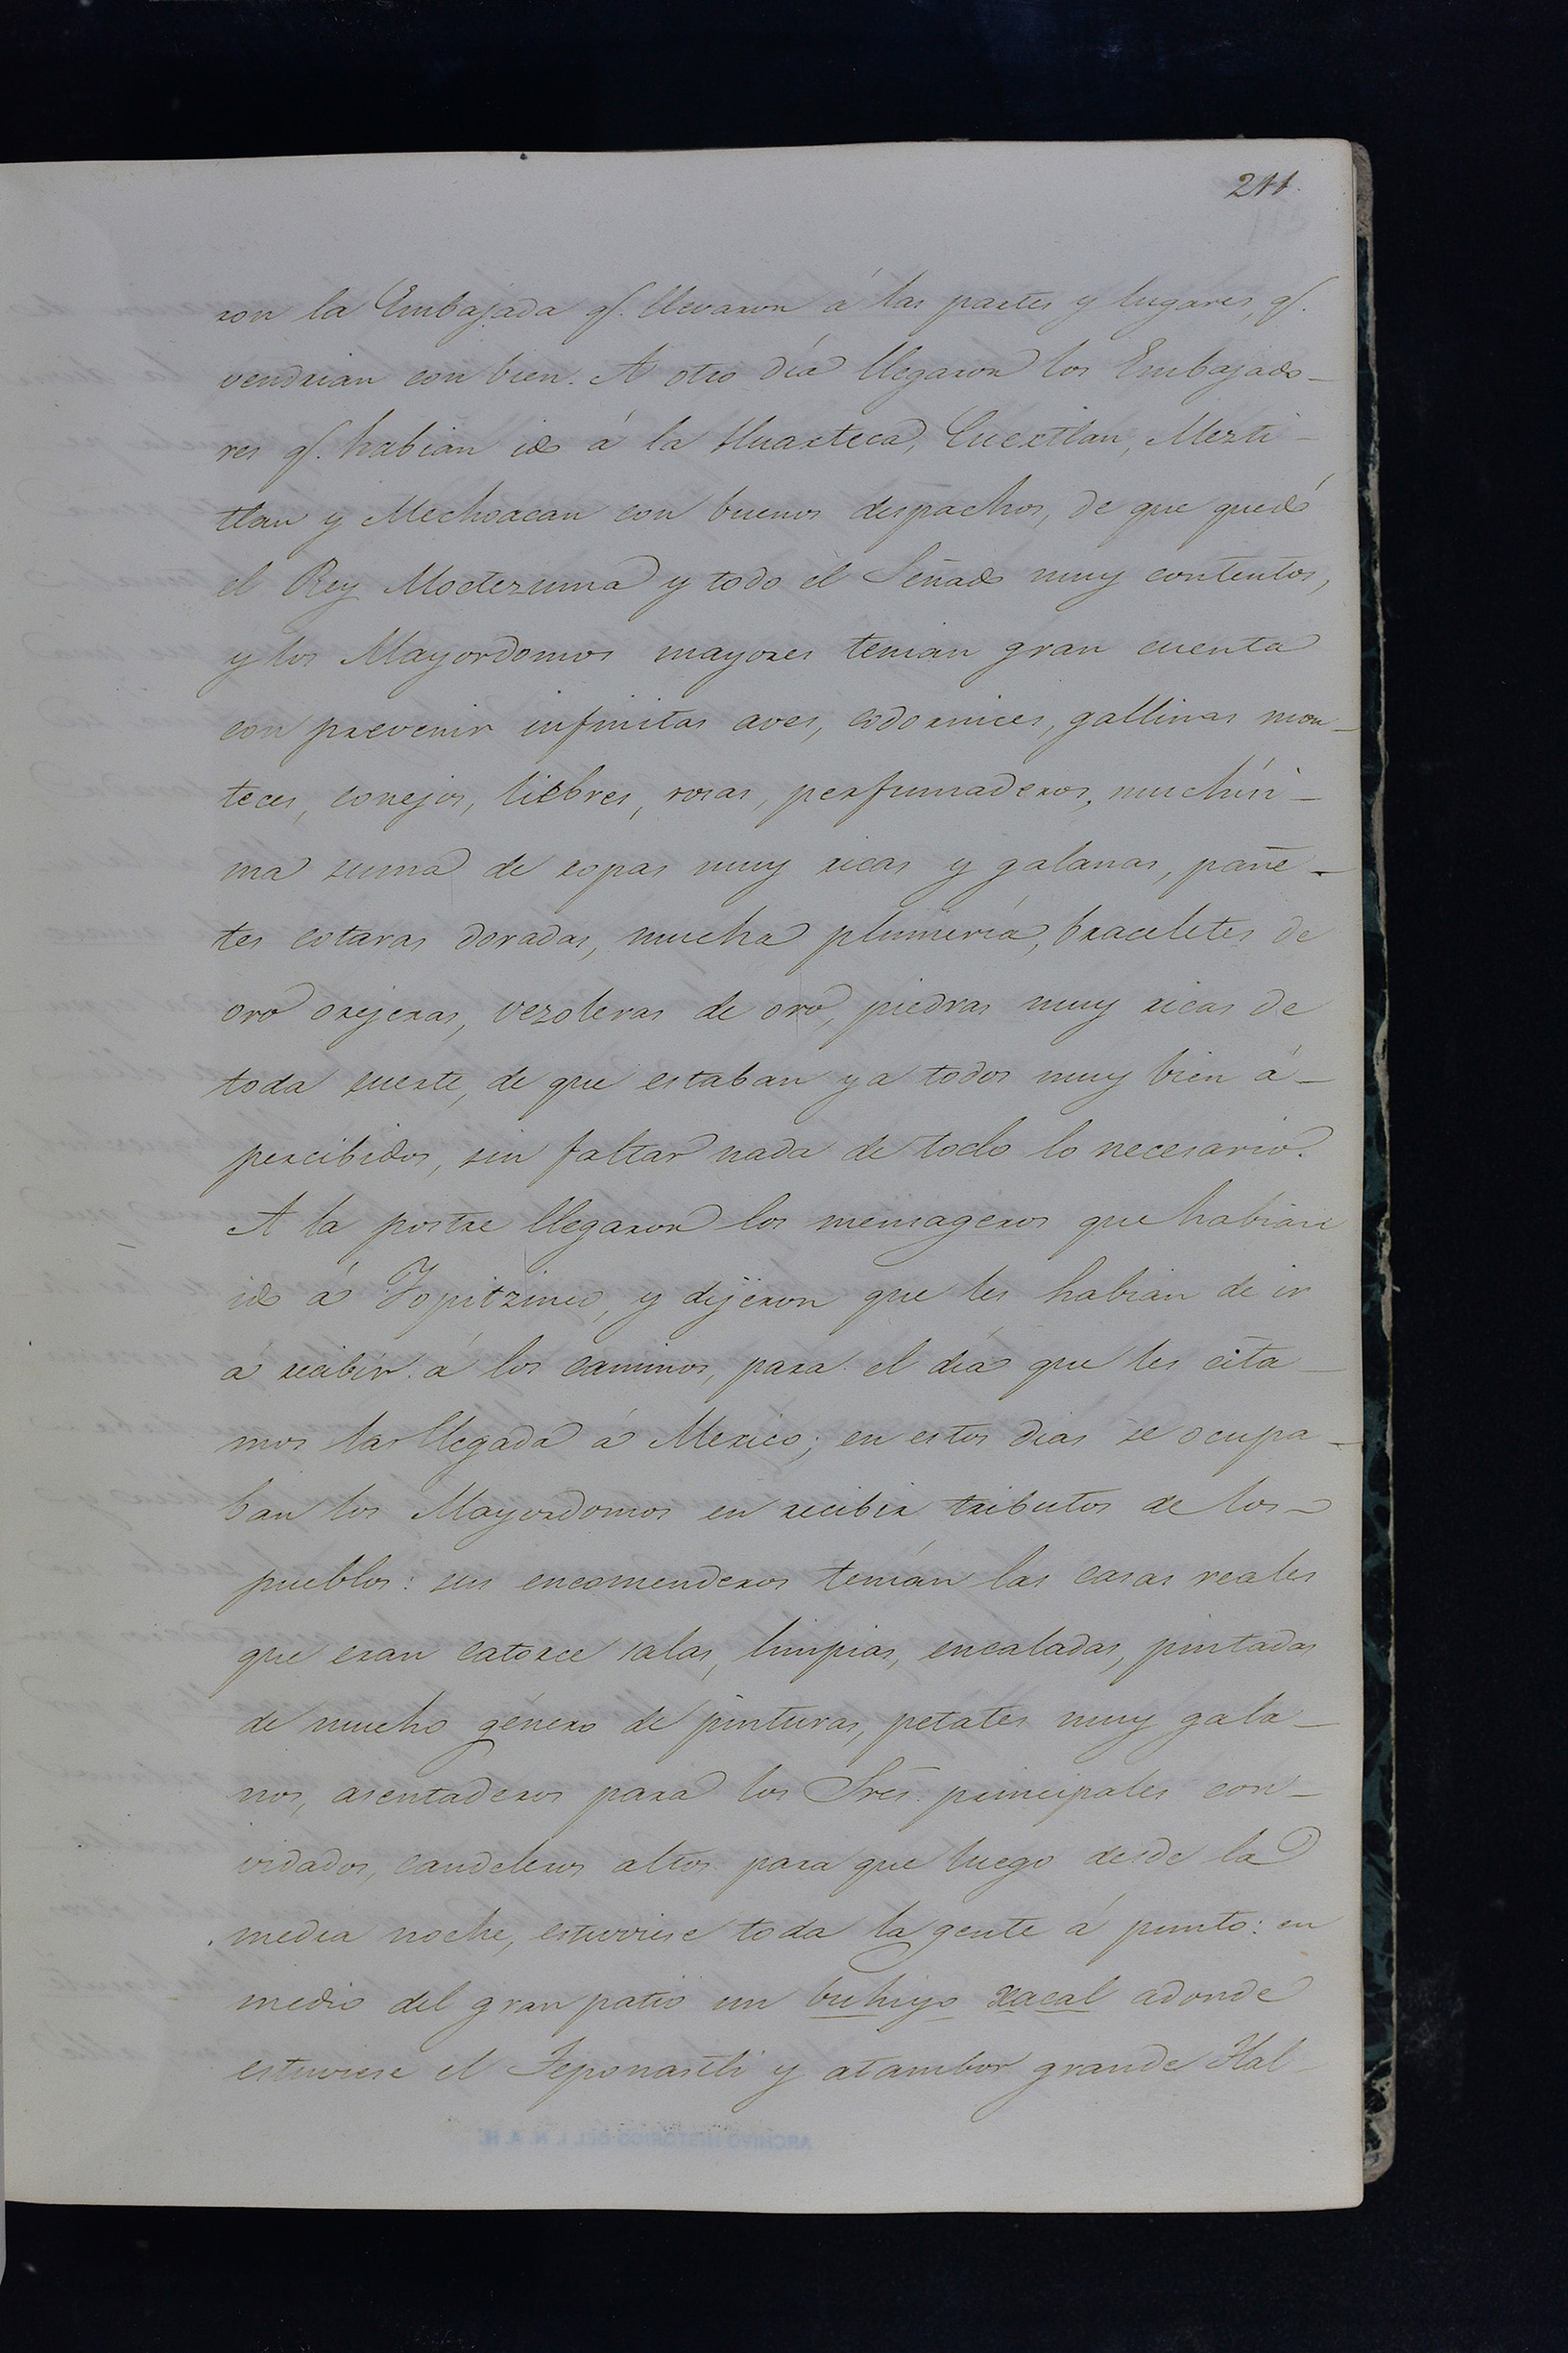 211.
ron la Embajada q.e llevaron á las partes y lugares, q.e
vendrian con bien. A otro día llegaron los Embajado-
res q.e habian ido á la Huaxteca, Cuextlan, Mezti-
tlan y Mechoacan con buenos despachos, de que quedó
el Rey Moctezuma y todo el Señado muy contentos,
y los Mayordomos mayores tenian gran cuenta
con prevenir infinitas aves, codornices, gallinas mon-
teces, conejos, liebres, rosas, perfumaderos, muchísi-
ma suma de ropas muy ricas y galanas, pañe-
tes cotaras doradas, mucha plumería, braceletes de
oro orejeras, vezoleras de oro, piedras muy ricas de
toda suerte, de que estaban ya todos muy bien á-
percibidos, sin faltar nada de todo lo necesario.
A la postre llegaron los mensageros que habian
ido á Yopitzinco, y dijeron que les habian de ir
á recibir á los caminos, para el día que les cita-
mos las llegada á Mexico; en estos dias se ocupa-
ban los Mayordomos en recibir tributos de los-
pueblos: sus encomenderos tenían las casas reales
que eran catorce salas, limpias, encaladas, pintadas
de mucho género de pinturas, petates muy gala-
nos, asentaderos para los Sres. principales con-
vidados, candeleros altos para que luego desde la
media noche, estuviese toda la gente á punto: en
medio del gran patio un buhiyo xacal adonde
estuviese el Teponastli y atambor grande Hal-
ARCHIVO HISTORICO DEL I. N. A. H.